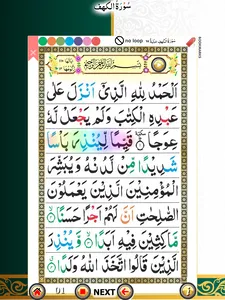 سُوْرَةُ الْكَهْف
no loop
بِسْمِ اللّٰهِ الرَّحْمٰنِ الرَّحِيْمِ
اَلْحَمْدُ لِلّٰهِ الَّذِيْٓ اَنْزَلَ عَلٰى
عَبْدِهِ الْكِتٰبَ وَلَمْ يَجْعَلْ لَّهٗ
عِوَجًا ۞ قَيِّمًا لِّيُنْذِرَ بَاْسًا
شَدِيْدًا مِّنْ لَّدُنْهُ وَيُبَشِّرَ
الْمُؤْمِنِيْنَ الَّذِيْنَ يَعْمَلُوْنَ
الصّٰلِحٰتِ اَنَّ لَهُمْ اَجْرًا حَسَنًا ۞
مَّاكِثِيْنَ فِيْهِ اَبَدًا ۞ وَّيُنْذِرَ
الَّذِيْنَ قَالُوا اتَّخَذَ اللّٰهُ وَلَدًا ۞
NEXT